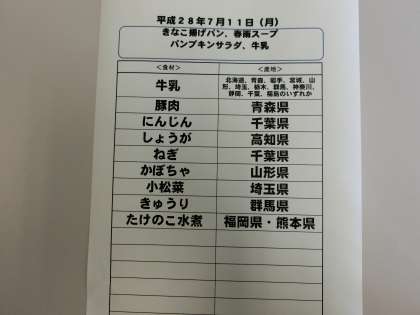 平成28年7月11日（月）
きなこ揚げパン、春雨スープ
パンプキンサラダ、牛乳
＜食材＞ ＜産地＞
牛乳 北海道、青森、岩手、宮城、山
形、埼玉、栃木、群馬、神奈川、
静岡、千葉、福島のいずれか
豚肉 青森県
にんじん 千葉県
しょうが 高知県
ねぎ 千葉県
かぼちゃ 山形県
小松菜 埼玉県
きゅうり 群馬県
たけのこ水煮 福岡県・熊本県